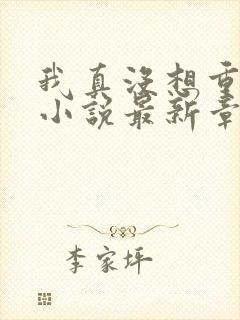 我真没想重
小说最新章
李家坪